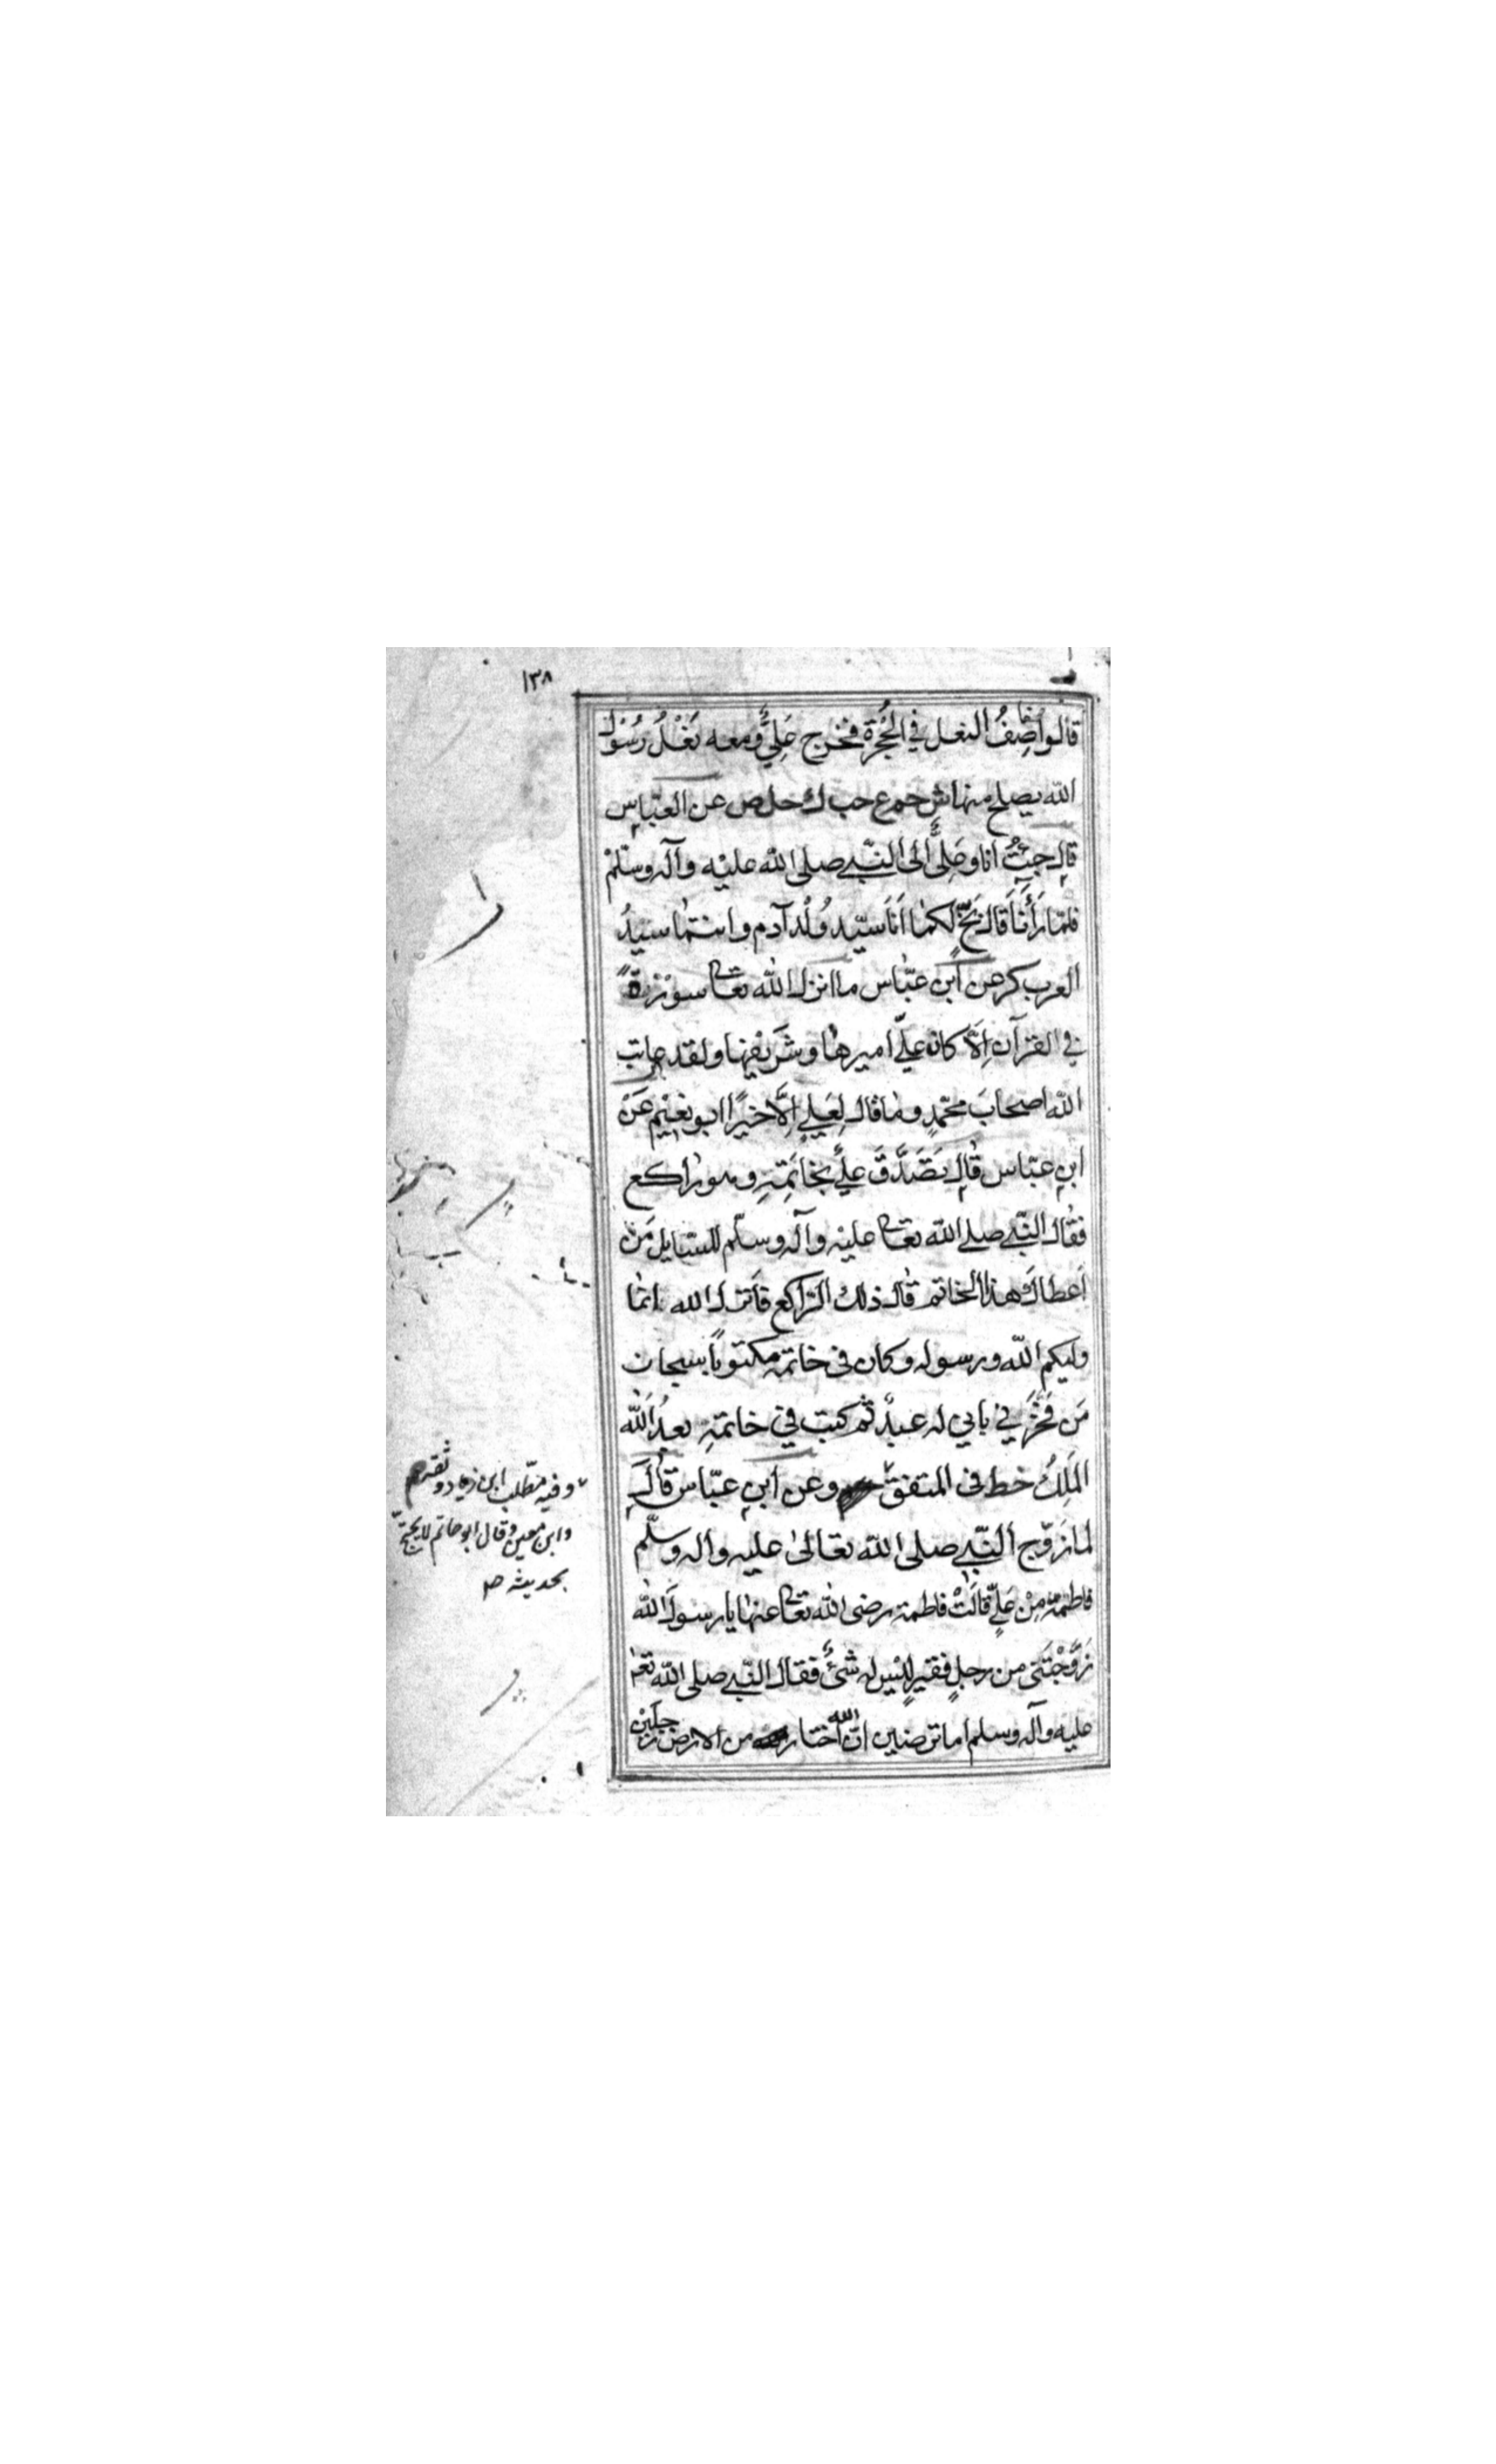 ١٣٨
قالوا خاصِفُ النعل في الحُجْرَة فخرج عَلِيٌّ ومعه نَعْلُ رَسُوْل
الله يصلح منها ش حم ع حب ك حل ص عن العبّاسِ
قال جِئتُ انا وعَلِيٌّ الى النبّي صلى الله عليْه وآله وسلّمْ
فلمّا رَأَنَا قالَ بَخٍّ لكمٰا اَنَا سيّد وُلْد آدم وانتمٰا سيّدُ
العرب كر عن ابن عبّاس ما انزل الله تعالى سوْرَةً
في القرآن اِلّا كان عليّ اميرها وشَرِيْفهَا ولقد عاتب
الله اصحابَ محمّدٍ وما قال لِعَلِيٍ اِلَّا خيرًا ابو نُعَيْم عَنْ
ابن عبّاس قالَ تَصَدَّقَ عليٌّ بخَاتَمِهِ وهو راكع
فقال النبّي صلى الله تعالى عليْه وآله وسلّم للسّايل مَنْ
اَعطاكَ هذا الخاتم قال ذلك الرّاكع فانزل الله انّمٰا
وليكم الله ورسوله وكان في خاتمه مكتوبًا سبحان
مَن فَخْرِي باني له عبدٌ ثم كتب في خاتمهِ بعدُ اللّه
المَلِكُ خط في المتفق وعن ابنِ عبّاس قال
لما زَوّج النبّي صلى الله تعالىٰ عليه واله وسلّم
فاطمةَ مِنْ عَلِيٍّ قالَتْ فاطمة رضى الله تعالى عنها يا رسولَ الله
زَوَّجْتَنى من رجلٍ فقيرٍ ليْس له شئٌ فقال النبّي صلى الله تعٰ
عليه وآله وسلم اما ترضين انّ الله اختار من الارض رَجلَيْن
وفيه مطّلب ابن زياد وثقه م
وابن معين وقال ابو حاتم لا يحتجّ
بحديثه ص